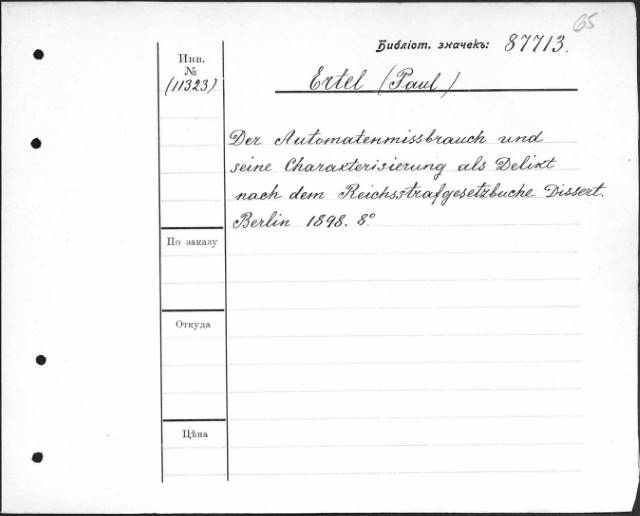 65
Библіот. значекъ: 87713.
Инв.
№
(11323)
Ertel (Paul)
Der Automatenmissbrauch und
seine Charakterisierung als Delikt
nach dem Reichsstrafgesetzbuche Dissert.
Berlin 1898. 8°
По заказу
Откуда
Цѣна